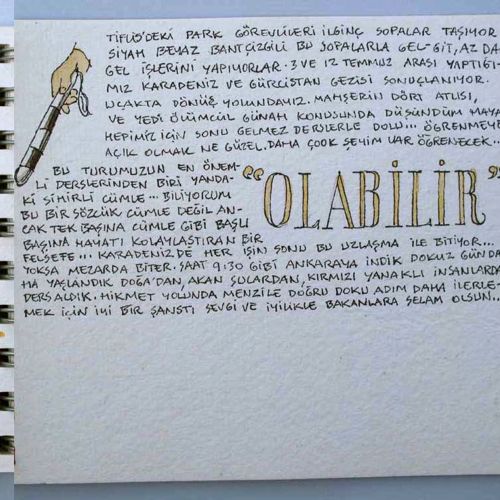 TİFLİS'DEKİ PARK GÖREVLİLERİ İLGİNÇ SOPALAR TAŞIYOR
SİYAH BEYAZ BANTÇİZGİLİ BU SOPALARLA GEL-GİT, AZ DA
GEL İŞLERİNİ YAPIYORLAR. 3 VE 12 TEMMUZ ARASI YAPTIĞI-
MIZ KARADENİZ VE GÜRCİSTAN GEZİSİ SONUÇLANIYOR.
UÇAKTA DÖNÜŞ YOLUNDAYIZ. MAHŞERİN DÖRT ATLISI,
VE YEDİ ÖLÜMCÜL GÜNAH KONUSUNDA DÜŞÜNDÜM HAYA
HEPİMİZ İÇİN SONU GELMEZ DERSLERLE DOLU... ÖĞRENMEYE
AÇIK OLMAK NE GÜZEL. DAHA ÇOOK ŞEYİM VAR ÖĞRENECEK...
BU TURUMUZUN EN ÖNEM-
Lİ DERSLERİNDEN BİRİ YANDA-
Kİ SİHİRLİ CÜMLE... BİLİYORUM
BU BİR SÖZCÜK CÜMLE DEĞİL AN-
CAK TEK BAŞINA CÜMLE GİBİ BAŞLI
BAŞINA HAYATI KOLAYLAŞTIRAN BİR
"OLABİLİR"
FELSEFE... KARADENİZ DE HER İŞİN SONU BU UZLAŞMA İLE BİTİYOR...
YOKSA MEZARDA BİTER. SAAT 9:30 GİBİ ANKARAYA İNDİK DOKUZ GÜN DA
HA YAŞLANDIK DOĞA'DAN, AKAN SULARDAN, KIRMIZI YANAKLI İNSANLARDA
DERS ALDIK. HİKMET YOLUNDA MENZİLE DOĞRU DOKU ADIM DAHA İLERLE-
MEK İÇİN İYİ BİR ŞANSTI SEVGİ VE İYİLİKLE BAKANLARA SELAM OLSUN...